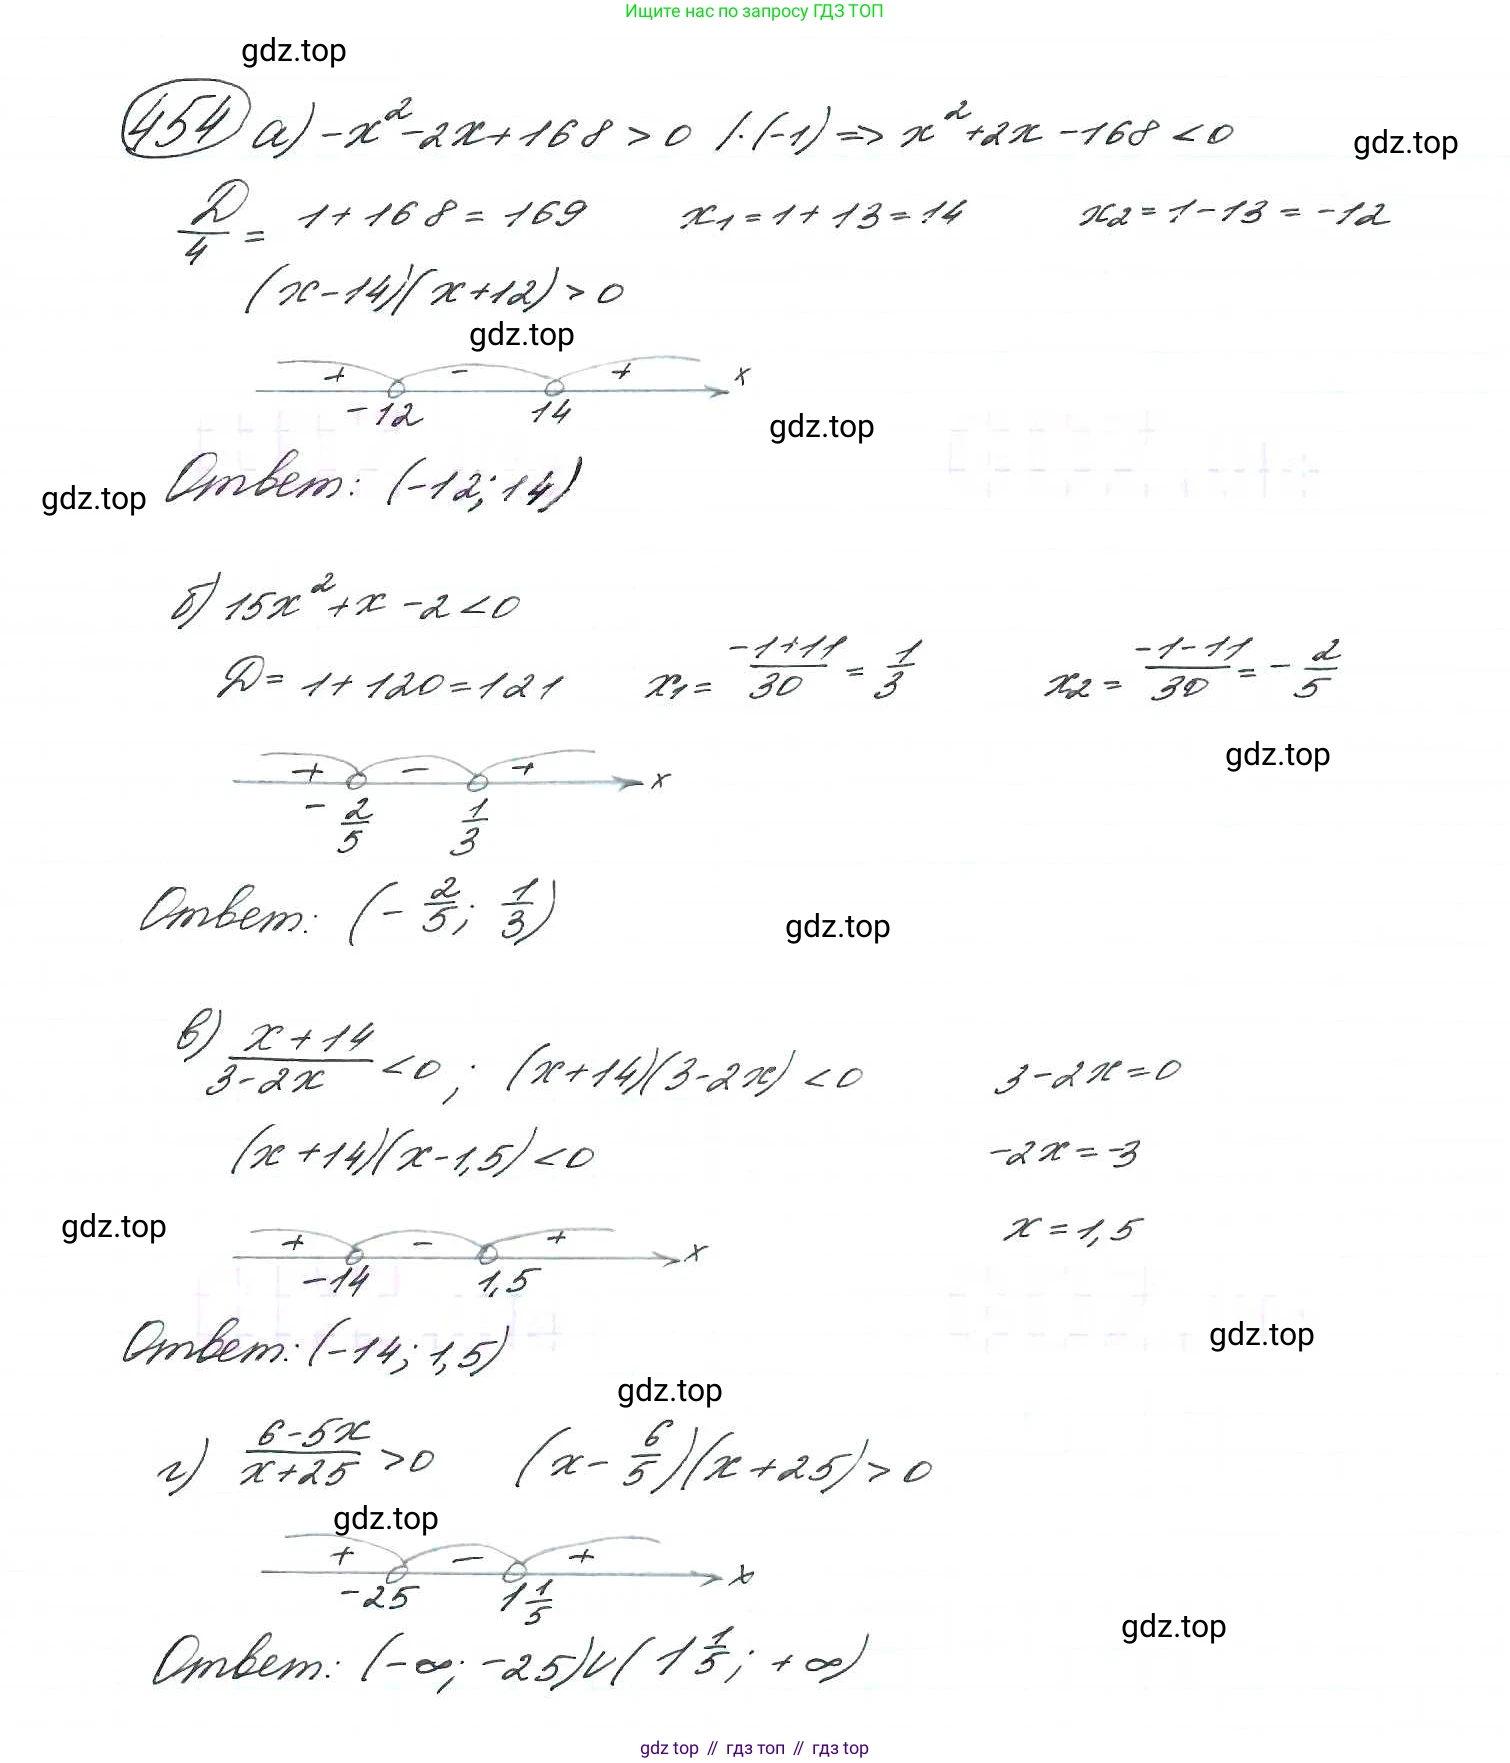 Ищите нас по запросу ГДЗ ТОП
gdz.top
454 а) -x² - 2x + 168 > 0 /·(-1) => x² + 2x - 168 < 0
gdz.top
D/4 = 1 + 168 = 169 x₁ = 1 + 13 = 14 x₂ = 1 - 13 = -12
(x - 14)(x + 12) > 0
gdz.top
+ - + x
-12 14
gdz.top
Ответ: (-12; 14)
gdz.top
б) 15x² + x - 2 < 0
D = 1 + 120 = 121 x₁ = (-1+11)/30 = 1/3 x₂ = (-1-11)/30 = -2/5
gdz.top
+ - + x
-2/5 1/3
Ответ: (-2/5; 1/3)
gdz.top
в) (x + 14)/(3 - 2x) < 0; (x + 14)(3 - 2x) < 0 3 - 2x = 0
(x + 14)(x - 1,5) < 0 -2x = -3
gdz.top
x = 1,5
+ - + x
-14 1,5
gdz.top
Ответ: (-14; 1,5)
gdz.top
г) (6 - 5x)/(x + 25) > 0 (x - 6/5)(x + 25) > 0
gdz.top
+ - + x
-25 1 1/5
gdz.top
Ответ: (-∞; -25)∪(1 1/5; +∞)
gdz.top // гдз топ // гдз.top